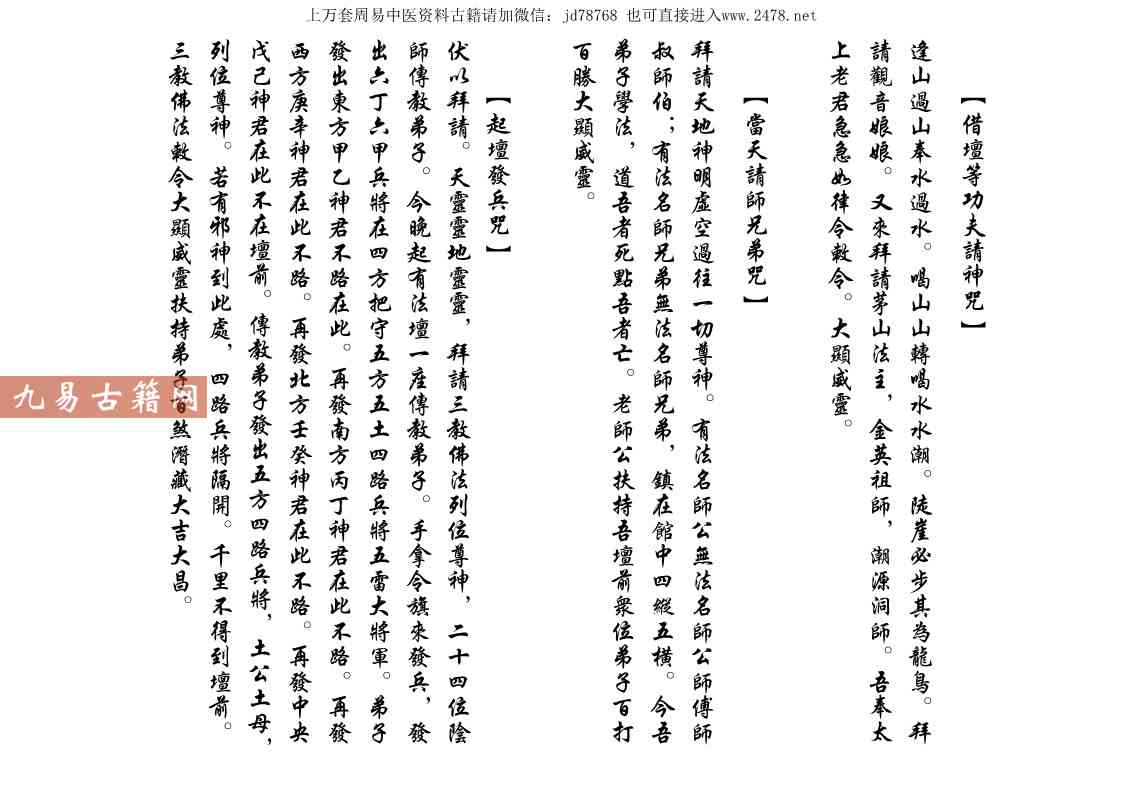 上万套周易中医资料古籍请加微信：jd78768 也可直接进入www.2478.net
【借壇等功夫請神咒】
逢山過山奉水過水。喝山山轉喝水水潮。陡崖必步其為龍鳥。拜
請觀音娘娘。又來拜請茅山法主，金英祖師，潮源洞師。吾奉太
上老君急急如律令敕令。大顯威靈。
【當天請師兄弟咒】
拜請天地神明虛空過往一切尊神。有法名師公無法名師公師傅師
叔師伯；有法名師兄弟無法名師兄弟，鎮在館中四縱五橫。今吾
弟子學法，道吾者死點吾者亡。老師公扶持吾壇前衆位弟子百打
百勝大顯威靈。
【起壇發兵咒】
伏以拜請。天靈靈地靈靈，拜請三教佛法列位尊神，二十四位陰
師傳教弟子。今晚起有法壇一座傳教弟子。手拿令旗來發兵，發
出六丁六甲兵將在四方把守五方五土四路兵將五雷大將軍。弟子
發出東方甲乙神君不路在此。再發南方丙丁神君在此不路。再發
西方庚辛神君在此不路。再發北方壬癸神君在此不路。再發中央
戊己神君在此不在壇前。傳教弟子發出五方四路兵將，土公土母，
列位尊神。若有邪神到此處，四路兵將隔開。千里不得到壇前。
三教佛法敕令大顯威靈扶持弟子百煞潛藏大吉大昌。
九易古籍网